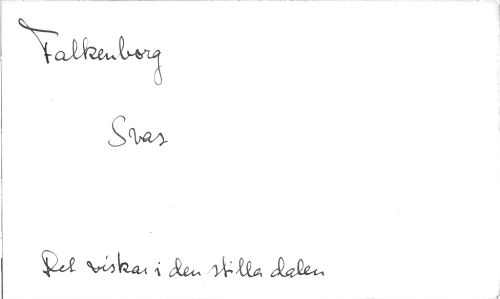 Falkenborg
Svar
Det viskar i den stilla dalen